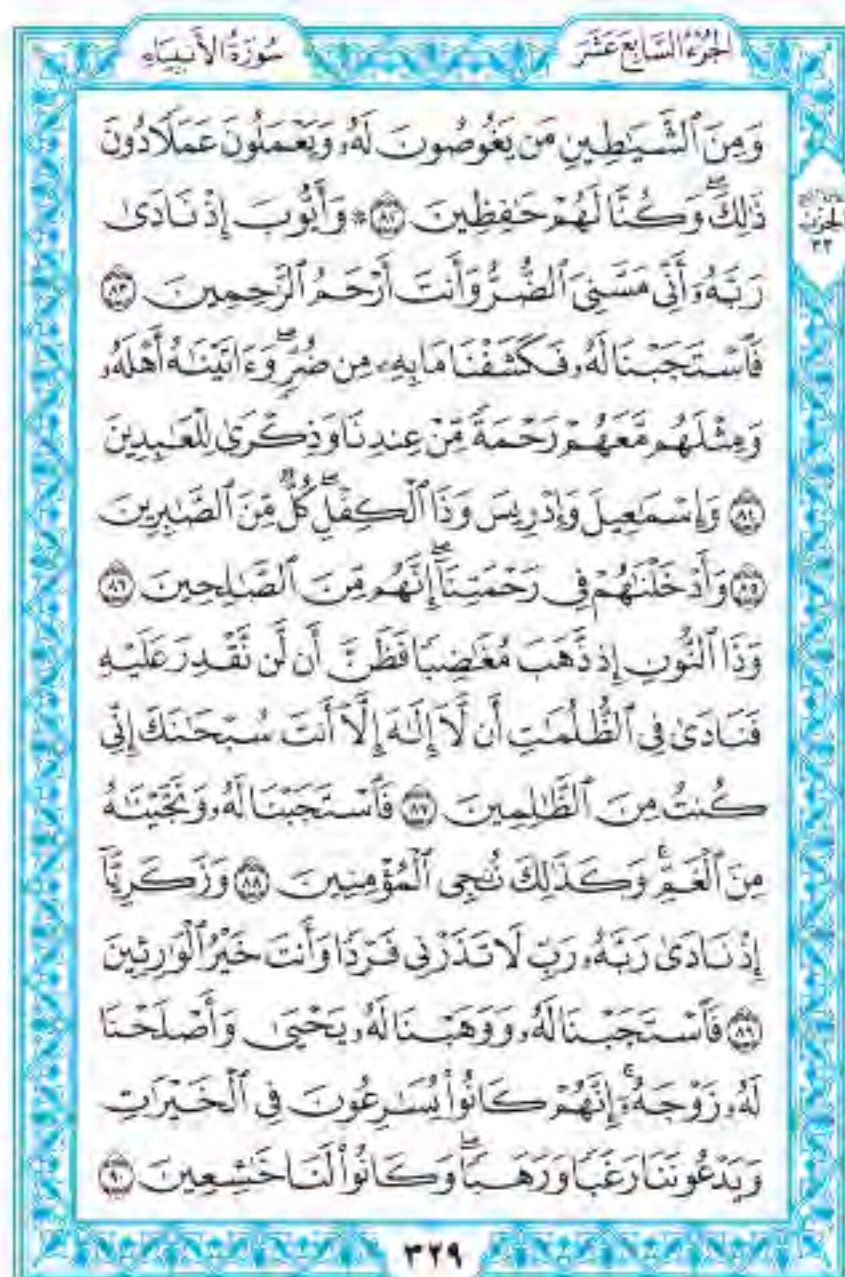 الجُزْءُ السَّابِعَ عَشَرَ
سُورَةُ الأَنبِيَاءِ
وَمِنَ ٱلشَّيَـٰطِينِ مَن يَغُوصُونَ لَهُۥ وَيَعْمَلُونَ عَمَلًا دُونَ
ذَٰلِكَۖ وَكُنَّا لَهُمْ حَـٰفِظِينَ ۝٨٢ ۞ وَأَيُّوبَ إِذْ نَادَىٰ
الحزب
٣٣
رَبَّهُۥٓ أَنِّى مَسَّنِىَ ٱلضُّرُّ وَأَنتَ أَرْحَمُ ٱلرَّٰحِمِينَ ۝٨٣
فَٱسْتَجَبْنَا لَهُۥ فَكَشَفْنَا مَا بِهِۦ مِن ضُرٍّۖ وَءَاتَيْنَـٰهُ أَهْلَهُۥ
وَمِثْلَهُم مَّعَهُمْ رَحْمَةً مِّنْ عِندِنَا وَذِكْرَىٰ لِلْعَـٰبِدِينَ
۝٨٤ وَإِسْمَـٰعِيلَ وَإِدْرِيسَ وَذَا ٱلْكِفْلِۖ كُلٌّ مِّنَ ٱلصَّـٰبِرِينَ
۝٨٥ وَأَدْخَلْنَـٰهُمْ فِى رَحْمَتِنَآۖ إِنَّهُم مِّنَ ٱلصَّـٰلِحِينَ ۝٨٦
وَذَا ٱلنُّونِ إِذ ذَّهَبَ مُغَـٰضِبًا فَظَنَّ أَن لَّن نَّقْدِرَ عَلَيْهِ
فَنَادَىٰ فِى ٱلظُّلُمَـٰتِ أَن لَّآ إِلَـٰهَ إِلَّآ أَنتَ سُبْحَـٰنَكَ إِنِّى
كُنتُ مِنَ ٱلظَّـٰلِمِينَ ۝٨٧ فَٱسْتَجَبْنَا لَهُۥ وَنَجَّيْنَـٰهُ
مِنَ ٱلْغَمِّۚ وَكَذَٰلِكَ نُـۨجِى ٱلْمُؤْمِنِينَ ۝٨٨ وَزَكَرِيَّآ
إِذْ نَادَىٰ رَبَّهُۥ رَبِّ لَا تَذَرْنِى فَرْدًا وَأَنتَ خَيْرُ ٱلْوَٰرِثِينَ
۝٨٩ فَٱسْتَجَبْنَا لَهُۥ وَوَهَبْنَا لَهُۥ يَحْيَىٰ وَأَصْلَحْنَا
لَهُۥ زَوْجَهُۥٓۚ إِنَّهُمْ كَانُوا۟ يُسَـٰرِعُونَ فِى ٱلْخَيْرَٰتِ
وَيَدْعُونَنَا رَغَبًا وَرَهَبًاۖ وَكَانُوا۟ لَنَا خَـٰشِعِينَ ۝٩٠
٣٢٩